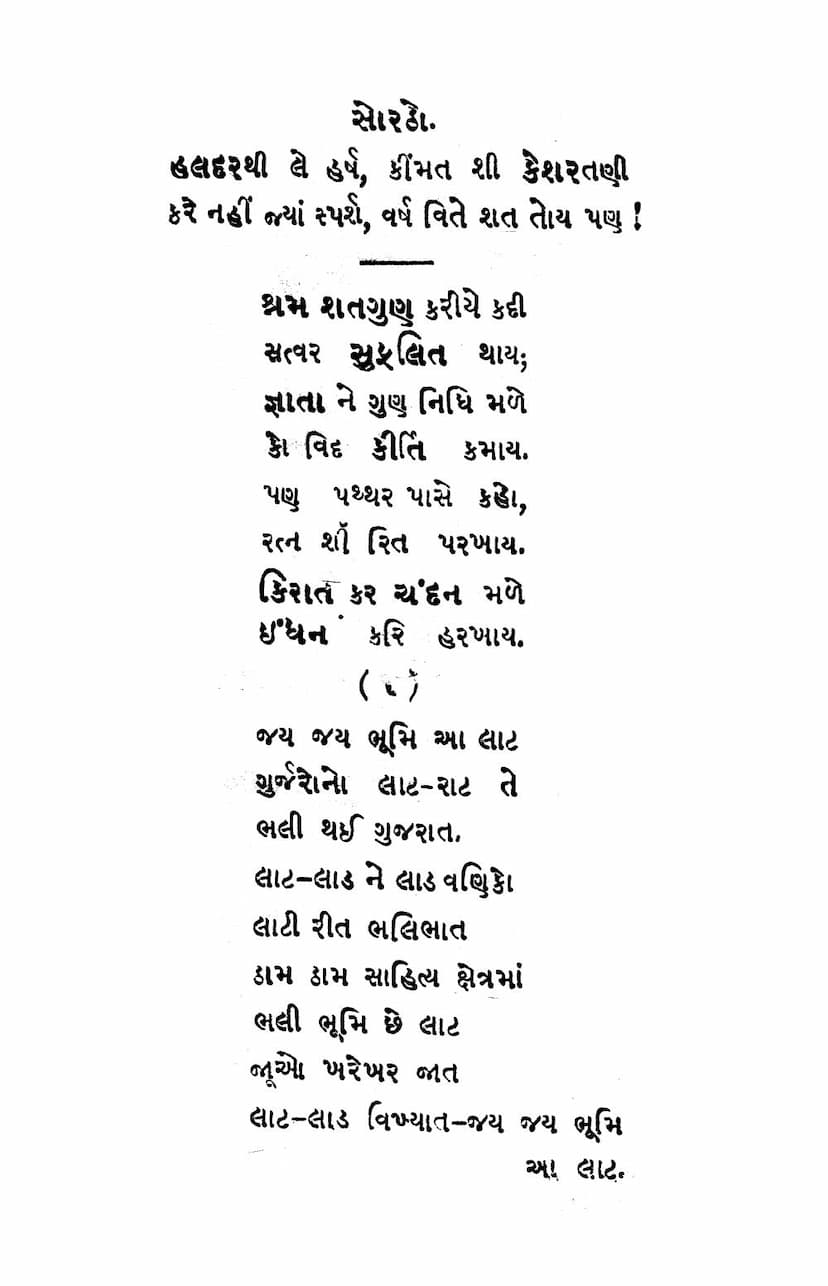 સોરઠો.
હલદરથી લે હર્ષ, કીંમત શી કેશરતણી
કરે નહીં જ્યાં સ્પર્શ, વર્ષ વિતે શત તોય પણ !
શ્રમ શતગુણ કરીયે કદી
સત્વર સુફલિત થાય;
જ્ઞાતા ને ગુણ નિધિ મળે
કો વિદ કીર્તિ કમાય.
પણ પથ્થર પાસે કહો,
રત્ન શી રિત પરખાય.
કિરાત કર ચંદન મળે
ઇંધન કરિ હરખાય.
(૬)
જય જય ભૂમિ આ લાટ
ગુર્જરોનો લાટ-રાટ તે
ભલી થઈ ગુજરાત.
લાટ-લાડ ને લાડ વણિકો
લાટી રીત ભલિભાત
ઠામ ઠામ સાહિત્ય ક્ષેત્રમાં
ભલી ભૂમિ છે લાટ
જાૂઓ ખરેખર જાત
લાટ-લાડ વિખ્યાત-જય જય ભૂમિ
આ લાટ.